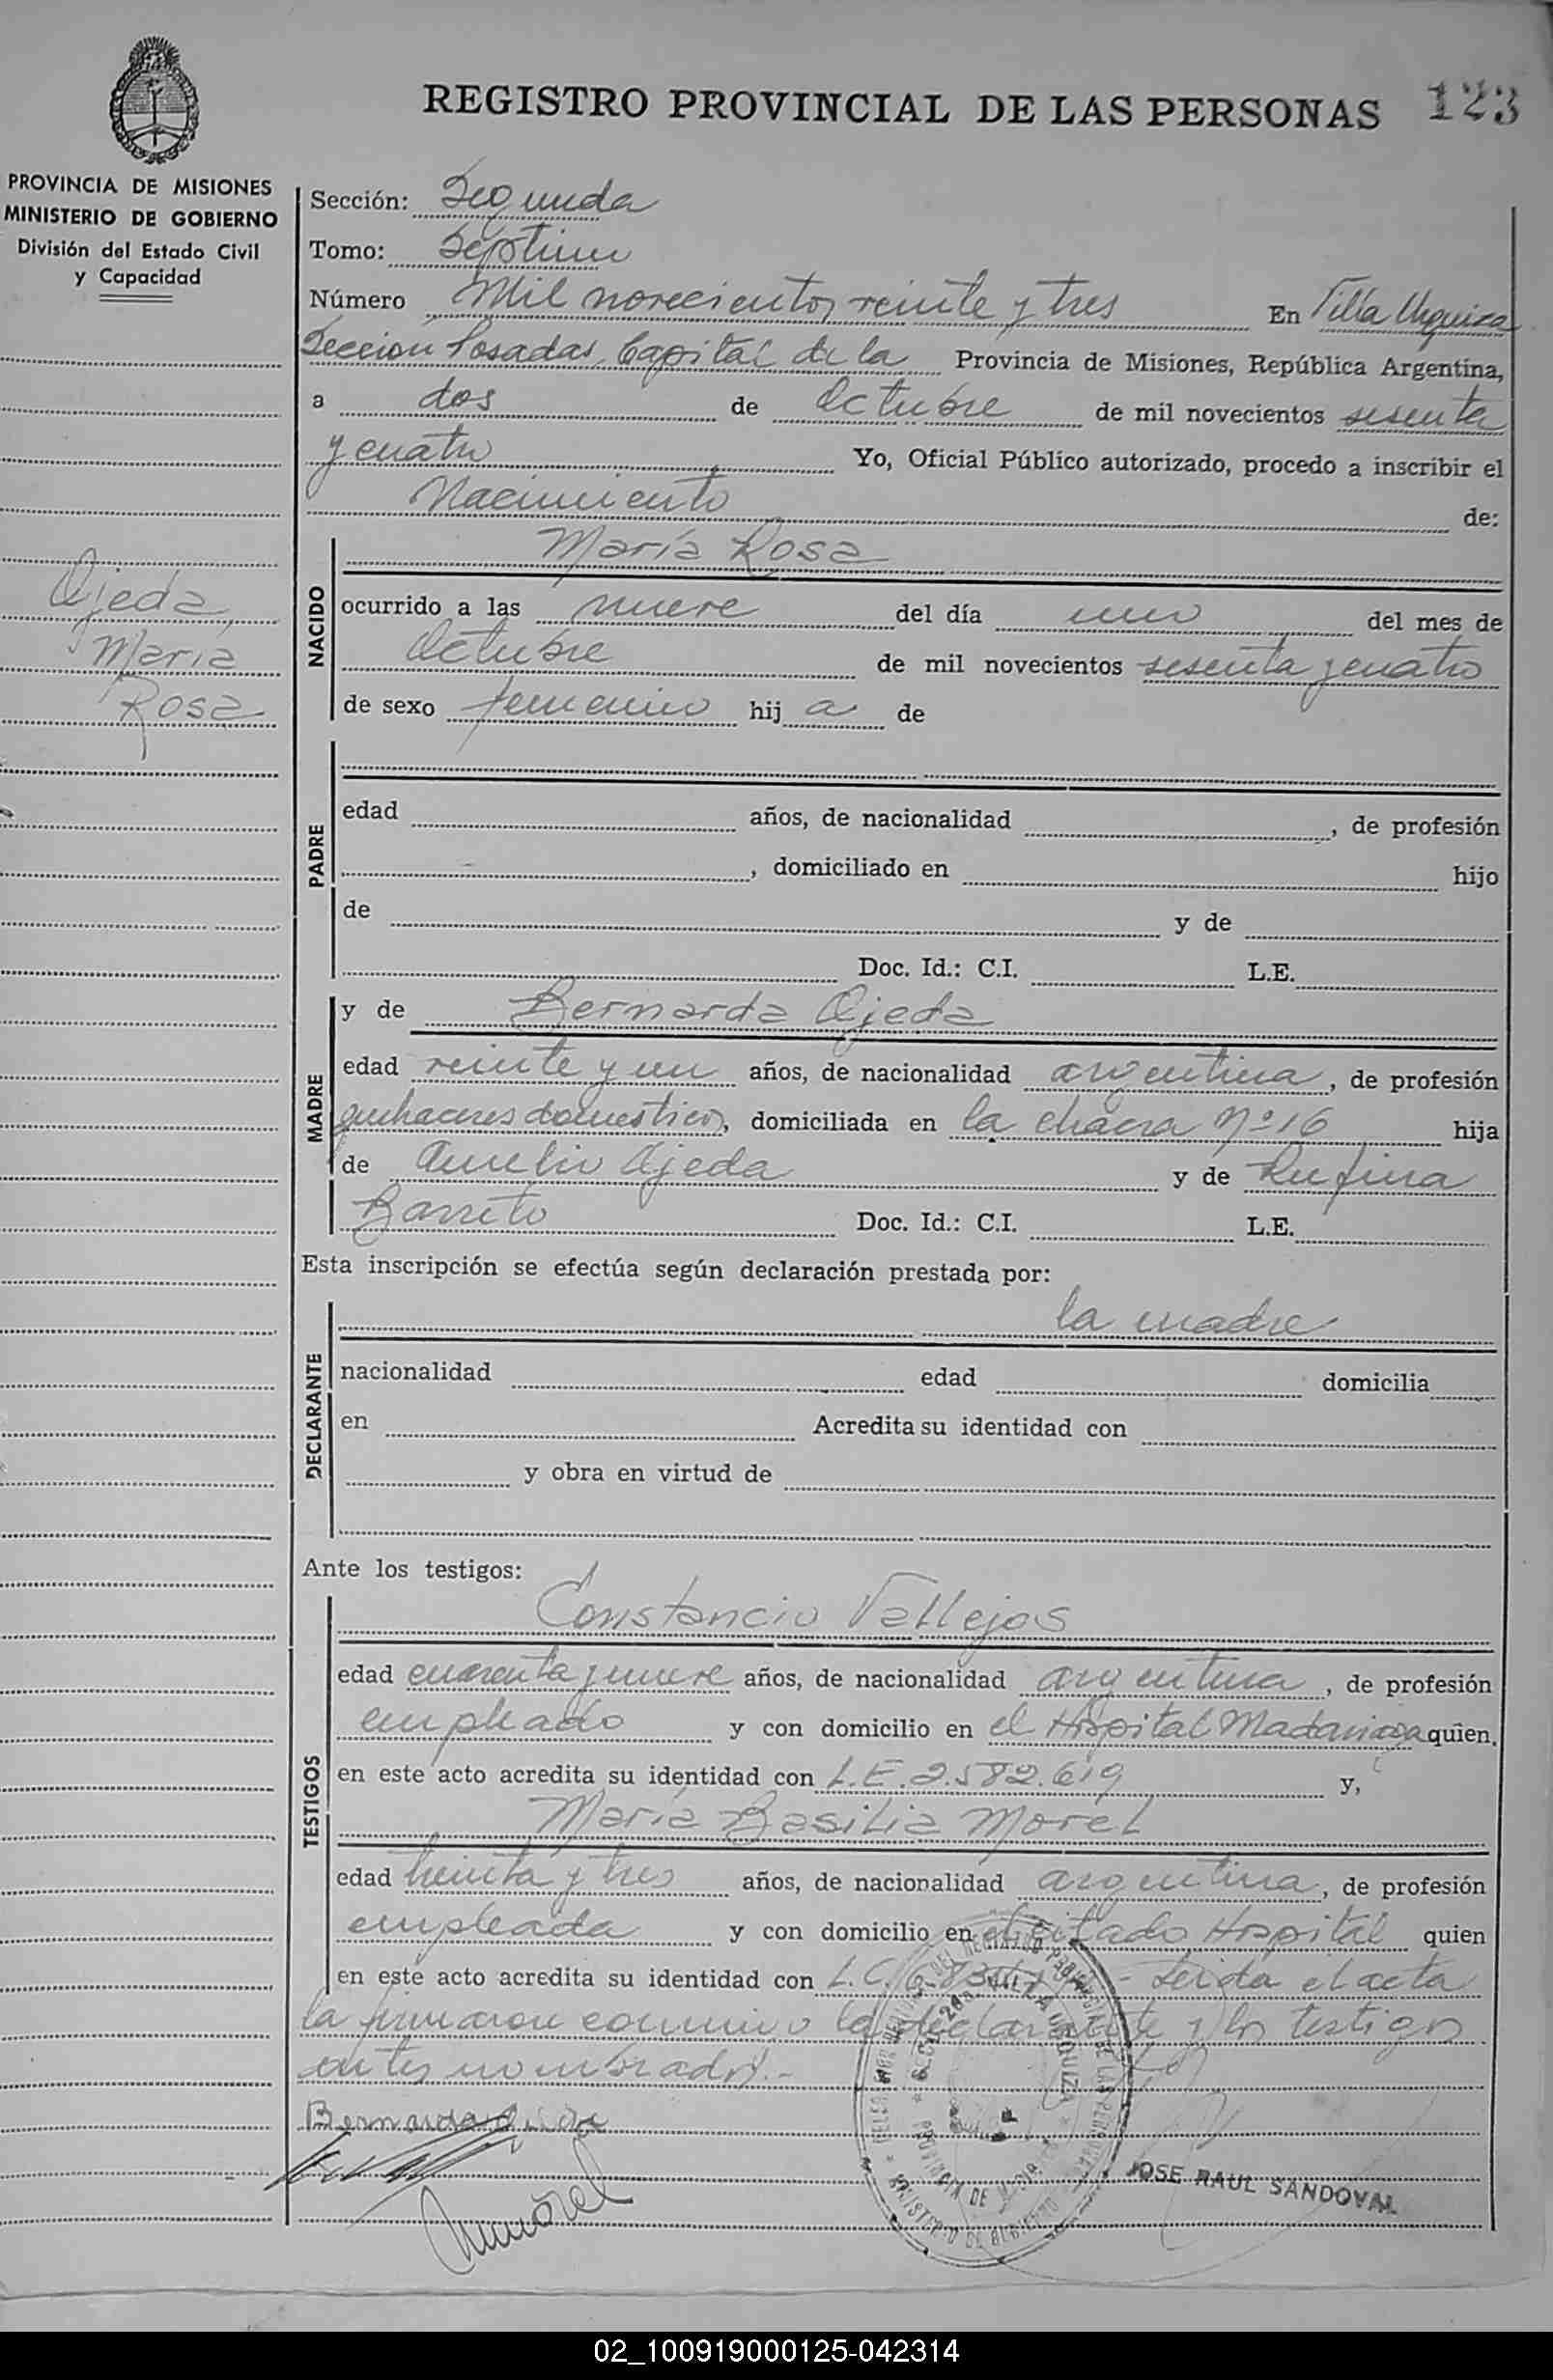 REGISTRO PROVINCIAL DE LAS PERSONAS 123
PROVINCIA DE MISIONES
MINISTERIO DE GOBIERNO
División del Estado Civil
y Capacidad
Sección: Segunda
Tomo: Septimo
Número Mil novecientos veinte y tres En Villa Urquiza
Sección Posadas, Capital de la Provincia de Misiones, República Argentina,
a dos de Octubre de mil novecientos sesenta
y cuatro Yo, Oficial Público autorizado, procedo a inscribir el
Nacimiento de:
Ojeda,
María
Rosa
NACIDO
María Rosa
ocurrido a las nueve del día uno del mes de
Octubre de mil novecientos sesenta y cuatro
de sexo femenino hij a de
PADRE
edad años, de nacionalidad , de profesión
, domiciliado en hijo
de y de
Doc. Id.: C.I. L.E.
MADRE
y de Bernarda Ojeda
edad veinte y un años, de nacionalidad argentina, de profesión
quehaceres domesticos, domiciliada en la chacra Nº 16 hija
de Aurelio Ojeda y de Rufina
Barreto Doc. Id.: C.I. L.E.
Esta inscripción se efectúa según declaración prestada por:
DECLARANTE
la madre
nacionalidad edad domicilia
en Acredita su identidad con
y obra en virtud de
Ante los testigos:
TESTIGOS
Constancio Vallejos
edad cuarenta y nueve años, de nacionalidad argentina, de profesión
empleado y con domicilio en el Hospital Madariaga quien,
en este acto acredita su identidad con L.E. 2.582.619 y,
María Basilia Morel
edad treinta y tres años, de nacionalidad argentina, de profesión
empleada y con domicilio en el citado Hospital quien
en este acto acredita su identidad con L.C. - Leida el acta
la firmaron conmigo la declarante y los testigos
antes nombrados.-
Bernarda Ojeda
Morel
JOSE RAUL SANDOVAL
02_100919000125-042314